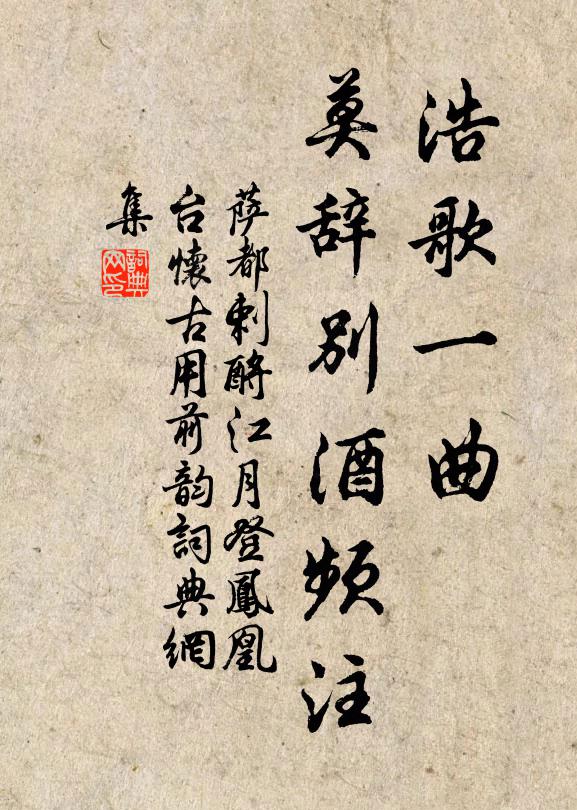 浩歌一曲
莫辞别酒频注
萨都剌酹江月登鳳凰
台懷古用前韵詞典網
集
詞典
网印